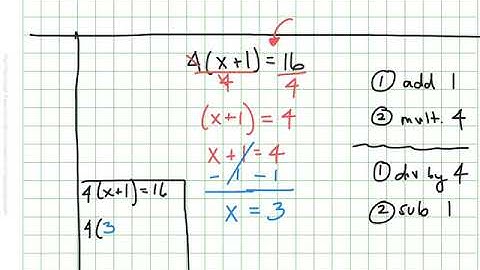 4(x+1) = 16
4 4
(x+1) = 4
x+1 = 4
-1 -1
x = 3
① add 1
② mult. 4
① div by 4
② sub 1
4(x+1) = 16
4(3